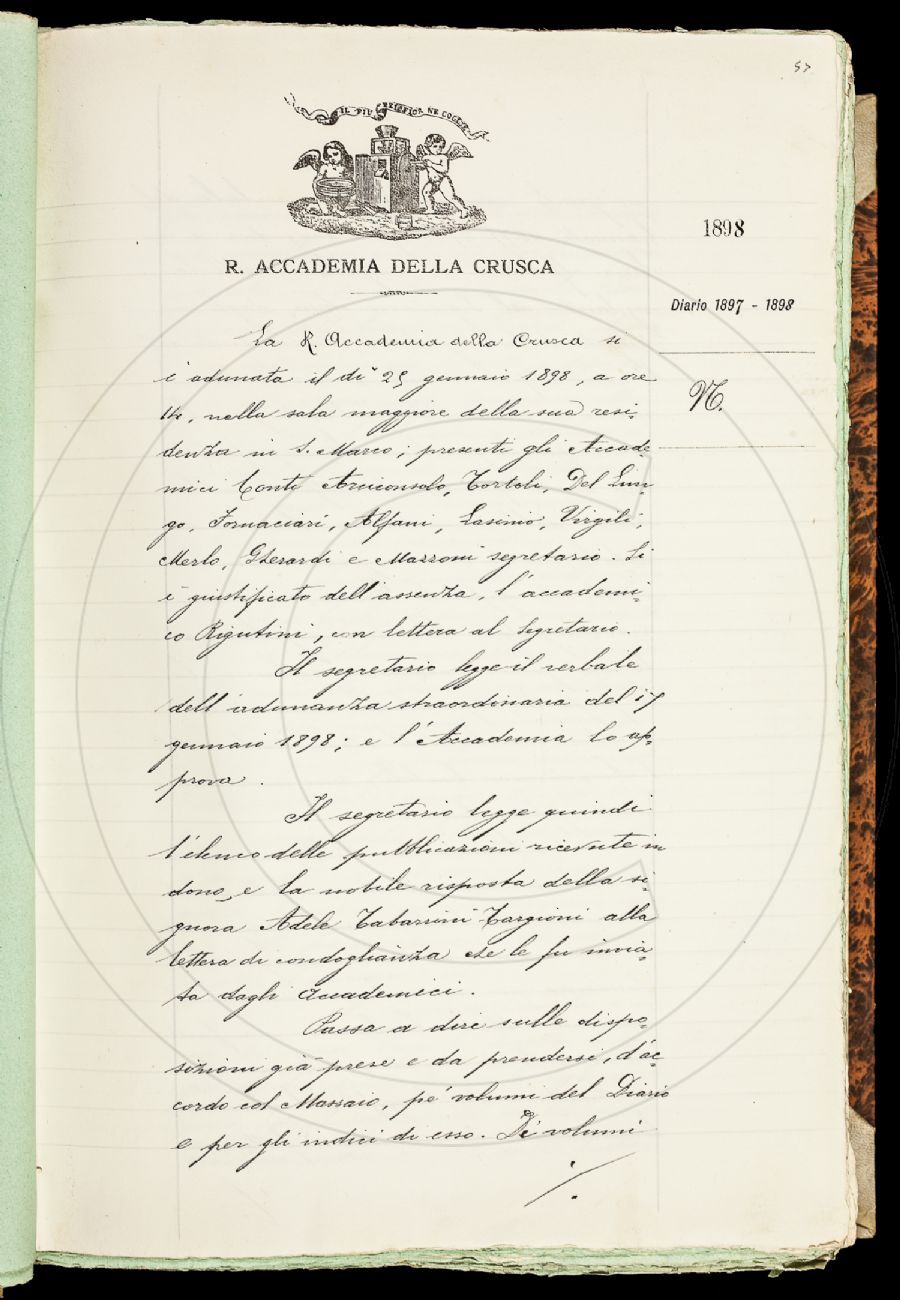 57
IL PIÙ BEL FIOR NE COGLIE
1898
R. ACCADEMIA DELLA CRUSCA
Diario 1897 - 1898
N.
La R. Accademia della Crusca si
è adunata il dì 25 gennaio 1898, a ore
14, nella sala maggiore della sua resi-
denza in S. Marco; presenti gli Accade-
mici Conti Arciconsolo, Tortoli, Del Lun-
go, Fornaciari, Alfani, Lasinio, Virgili,
Merlo, Gherardi e Mazzoni segretario. Si
è giustificato dell'assenza, l'accademi-
co Rigutini, con lettera al Segretario.
Il segretario legge il verbale
dell'adunanza straordinaria del 17
gennaio 1898; e l'Accademia lo ap-
prova.
Il segretario legge quindi
l'elenco delle pubblicazioni ricevute in
dono, e la nobile risposta della si-
gnora Adele Tabarrini Targioni alla
lettera di condoglianza che le fu invia-
ta dagli Accademici.
Passa a dire sulle dispo-
sizioni già prese e da prendersi, d'ac-
cordo col Massaio, pe' volumi del Diario
e per gli indici di esso. Di volumi
./.